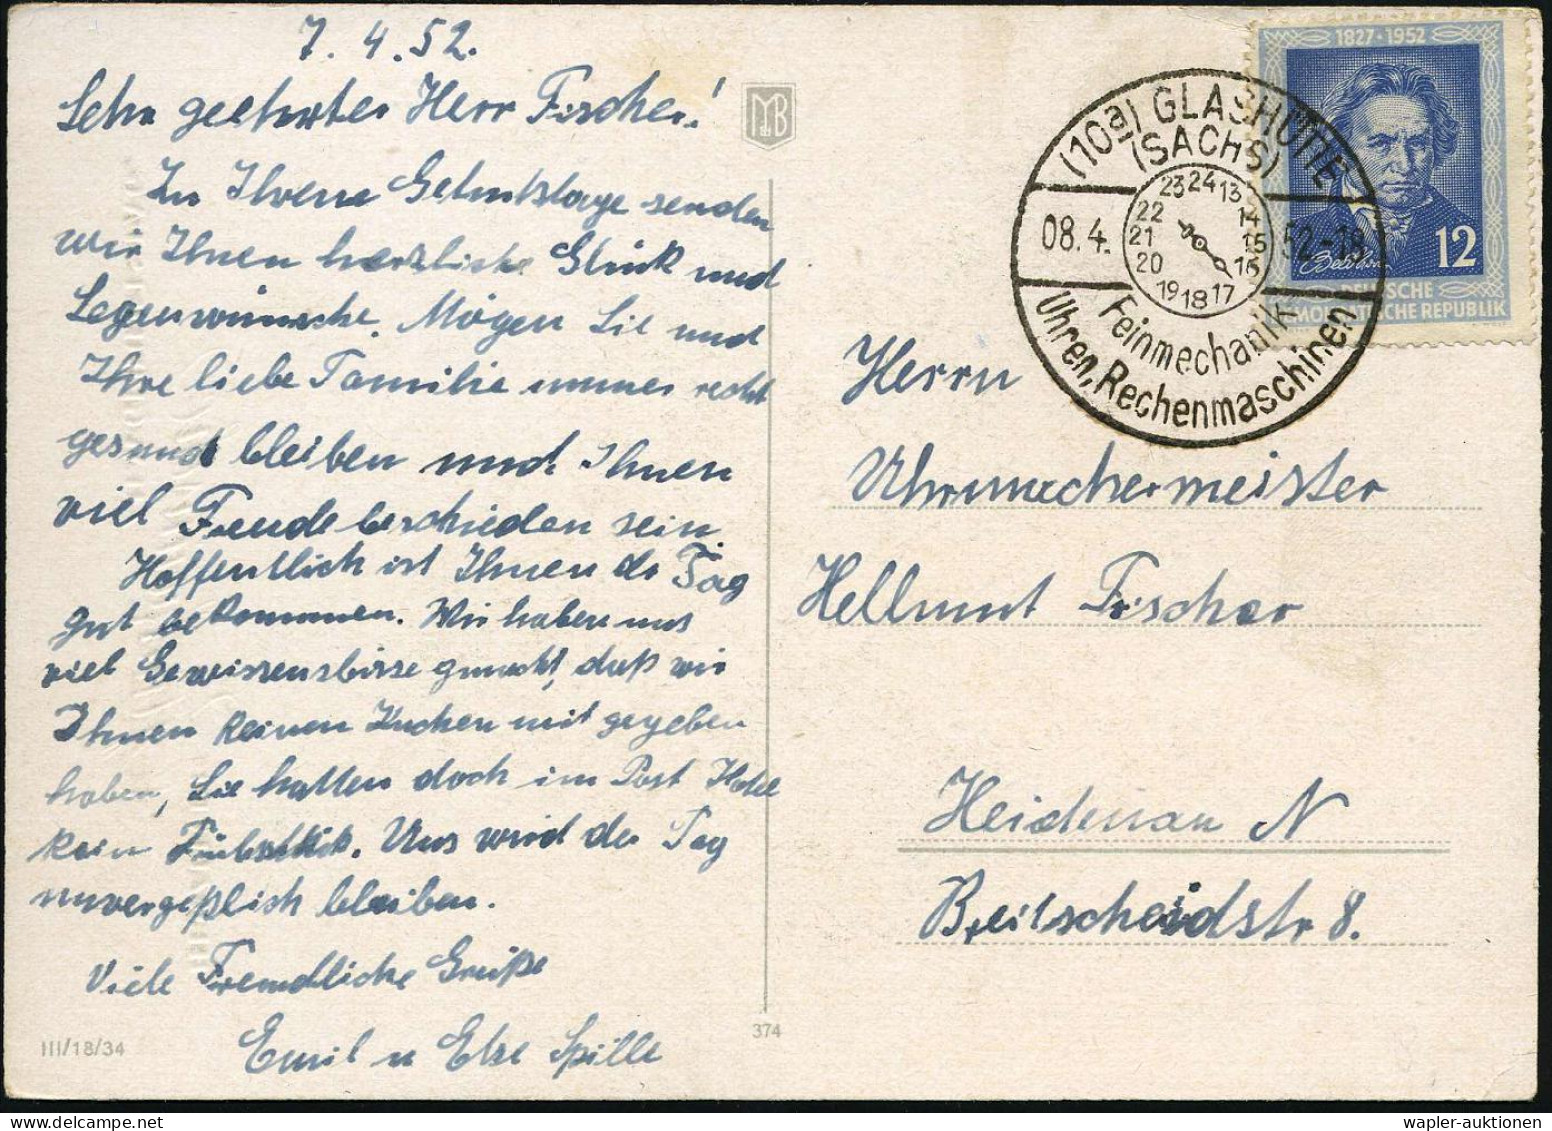 7. 4. 52.
Sehr geehrter Herr Fischer!
Zu Ihrem Geburtstage senden
wir Ihnen herzliche Glück und
Segenwünsche. Mögen Sie und
Ihre liebe Familie immer recht
gesund bleiben und Ihnen
viel Freude beschieden sein.
Hoffentlich ist Ihnen der Tag
gut bekommen. Wir haben uns
viel Gewissensbisse gemacht, daß wir
Ihnen keinen Kuchen mit gegeben
haben, Sie hatten doch im Post Hotel
kein Frühstück. Uns wird der Tag
unvergeßlich bleiben.
Viele Freundliche Grüße
Emil u Else Spille
III/18/34
374
MB
1827 · 1952
12
Beethoven
DEUTSCHE
DEMOKRATISCHE REPUBLIK
(10a) GLASHÜTTE
(SACHS)
23 24 13
22 14
21 15
20 16
19 18 17
08.4. 52.-18
Feinmechanik
Uhren, Rechenmaschinen
Herrn
Uhrmachermeister
Hellmut Fischer
Heidenau N
Breitscheidstr 8.
wapler-auktionen